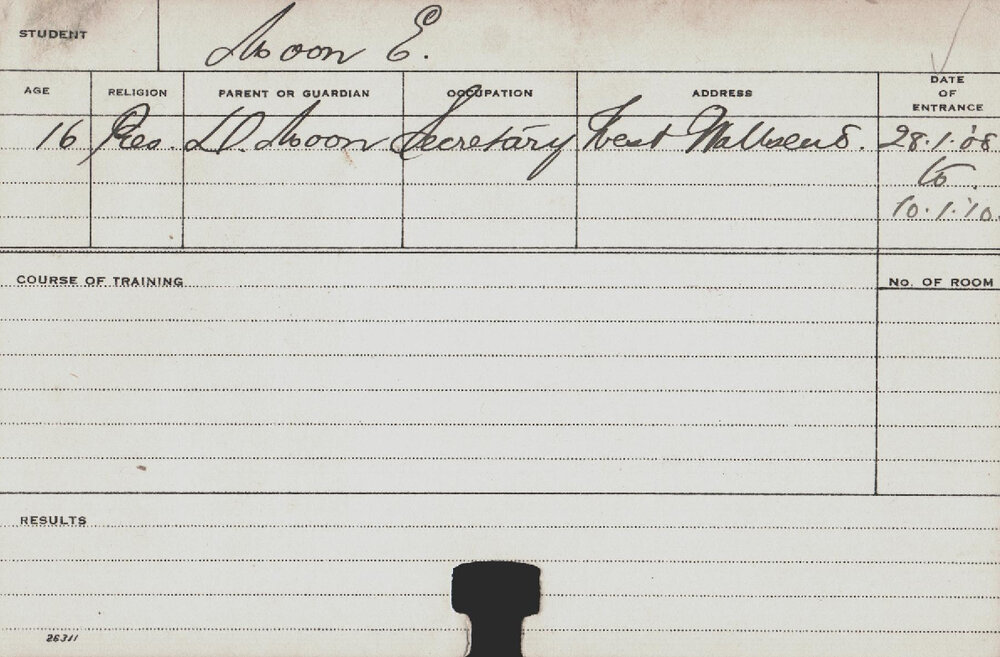 STUDENT Moon E.
AGE RELIGION PARENT OR GUARDIAN OCCUPATION ADDRESS DATE OF ENTRANCE
16 Pres. D. Moon Secretary West Wallsend. 28.1.'08
to
10.1.'10
COURSE OF TRAINING No. OF ROOM
RESULTS
26311